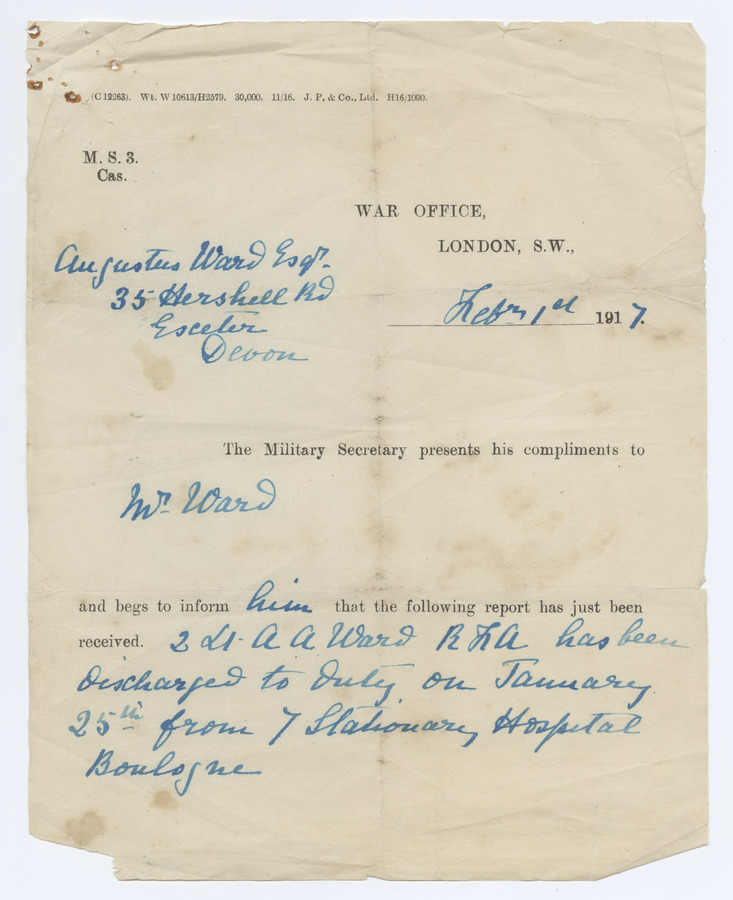 (C 12263). Wt. W 10613/H2579. 30,000. 11/16. J. P. & Co., Ltd. H16/1090.
M. S. 3.
Cas.
WAR OFFICE,
LONDON, S.W.,
Augustus Ward Esqr.
35 Hershell Rd
Exceter
Devon
Febry 1st 1917.
The Military Secretary presents his compliments to
Mr Ward
and begs to inform him that the following report has just been
received. 2 Lt. A A Ward R F A has been
discharged to duty on January
25th from 7 Stationary Hospital
Boulogne